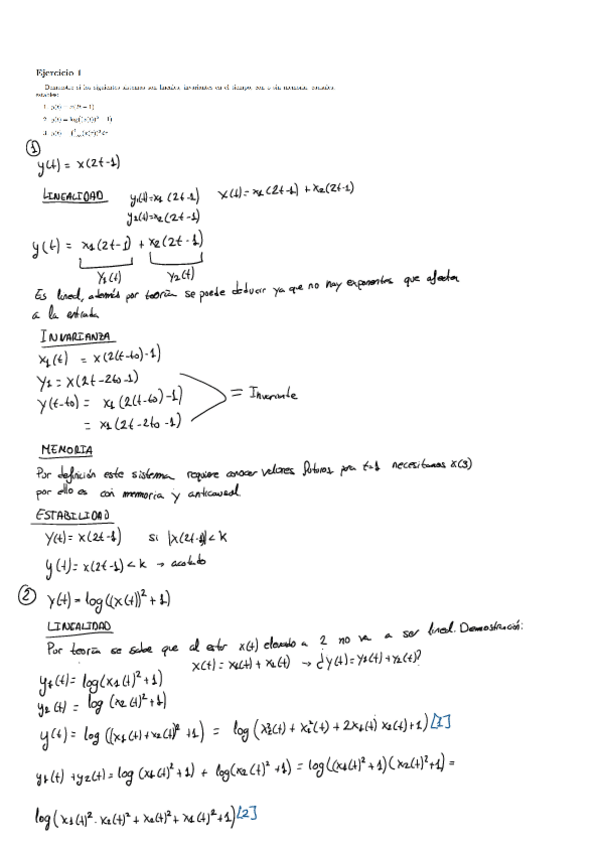 Ejercicio 1
①
y(t) = x(2t-1)
LINEALIDAD y₁(t)=x₁(2t-1) x(t)=x₁(2t-1)+x₂(2t-1)
y₂(t)=x₂(2t-1)
y(t) = x₁(2t-1) + x₂(2t-1)
y₁(t) y₂(t)
Es lineal, además por teoría se puede deducir ya que no hay exponentes que afecten
a la entrada
INVARIANZA
x₁(t) = x(2(t-to)-1)
y₁ = x(2t-2to-1)
y(t-to) = x₁(2(t-to)-1) = Invariante
= x₁(2t-2to-1)
MEMORIA
Por definición este sistema requiere conocer valores futuros para necesitamos x(3)
por ello es con memoria y anticausal
ESTABILIDAD
y(t)=x(2t-1) si |x(2t-1)|<k
y(t)=x(2t-1)<k → acotado
② y(t)=log((x(t))²+1)
LINEALIDAD
Por teoría se sabe que al estar x(t) elevado a 2 no va a ser lineal. Demostración:
x(t) = x₁(t)+x₂(t) → ¿y(t)=y₁(t)+y₂(t)?
y₁(t)=log(x₁(t)²+1)
y₂(t) = log(x₂(t)²+1)
y(t)= log((x₁(t)+x₂(t))²+1) = log(x₁²(t)+x₂²(t)+2x₁(t)x₂(t)+1)[1]
y₁(t)+y₂(t)=log(x₁(t)²+1)+log(x₂(t)²+1)=log((x₁(t)²+1)(x₂(t)²+1)=
log(x₁(t)²·x₂(t)²+x₂(t)²+x₁(t)²+1)[2]